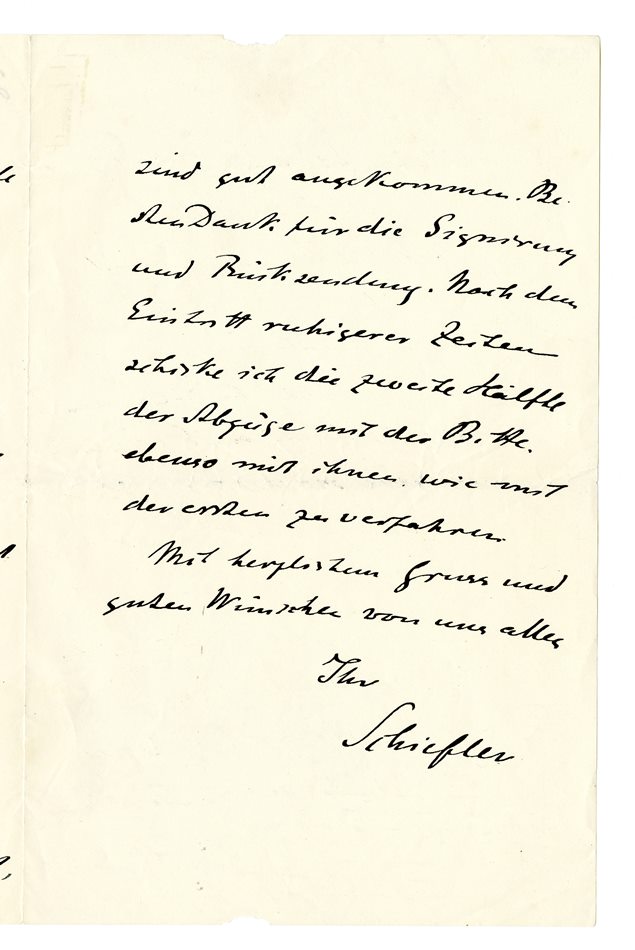 sind gut angekommen. Be-
sten Dank für die Signirung
und Rücksendung. Nach dem
Eintritt ruhigerer Zeiten
schicke ich die zweite Hälfte
der Abzüge mit der Bitte.
ebenso mit ihnen, wie mit
der ersten zu verfahren.
Mit herzlichem Gruss und
guten Wünschen von uns allen
Ihr
Schiefler